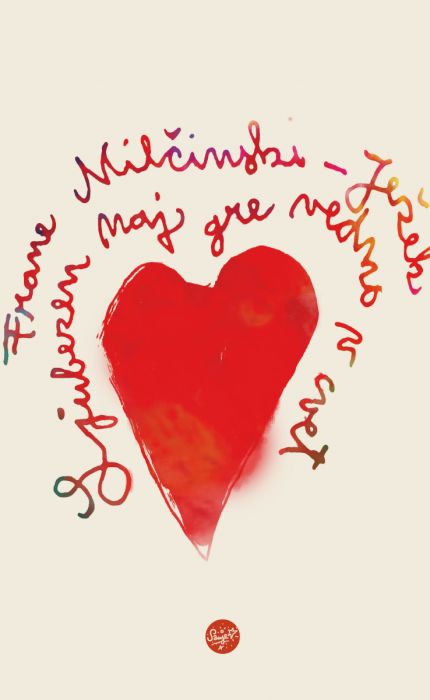 Frane Milčinski - Ježek
Ljubezen naj gre vedno v svet
Sanje